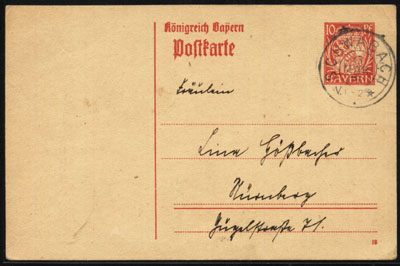 Königreich Bayern
Postkarte
10 Pf
BAYERN
SCHWABACH
Fräulein
Lina Hößbacher
Nürnberg
Hügelstraße 71.
18